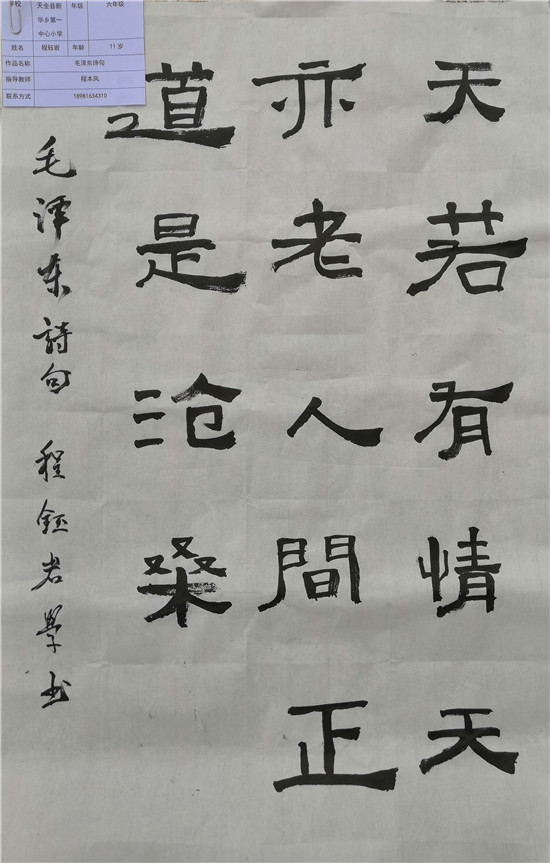 天若有情天
亦老人間正
道是沧桑
毛泽东詩句 程鈺岩學书
学校 天全县新华乡第一中心小学 年级 六年级
姓名 程钰岩 年龄 11岁
作品名称 毛泽东诗句
指导教师 程本凤
联系方式 18981634310